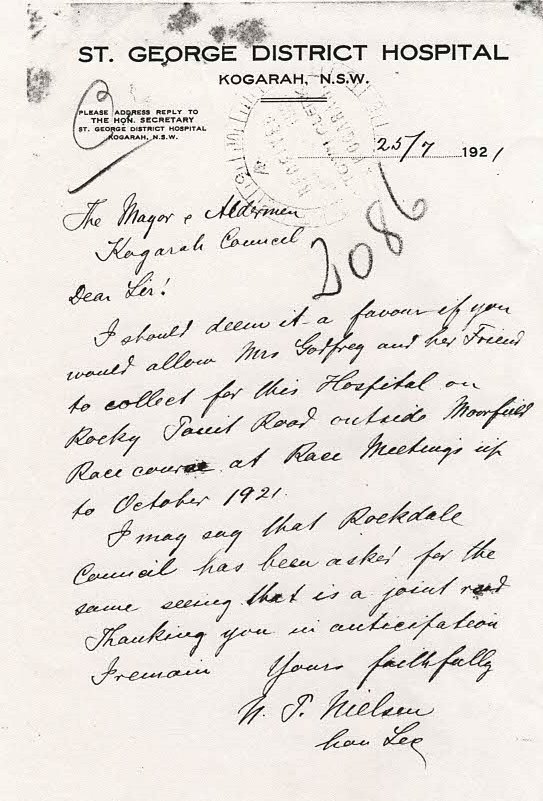 ST. GEORGE DISTRICT HOSPITAL
KOGARAH, N.S.W.
PLEASE ADDRESS REPLY TO
THE HON. SECRETARY
ST. GEORGE DISTRICT HOSPITAL
KOGARAH, N.S.W.
25/7 1921
2086
The Mayor & Aldermen
Kogarah Council
Dear Sir!
I should deem it a favour if you
would allow Mrs Godfrey and her Friend
to collect for this Hospital on
Rocky Point Road outside Moorfield
Race course at Race Meetings up
to October 1921.
I may say that Rockdale
Council has been asked for the
same seeing that is a joint road
Thanking you in anticipation
I remain Yours faithfully
N. T. Nielsen
hon Sec